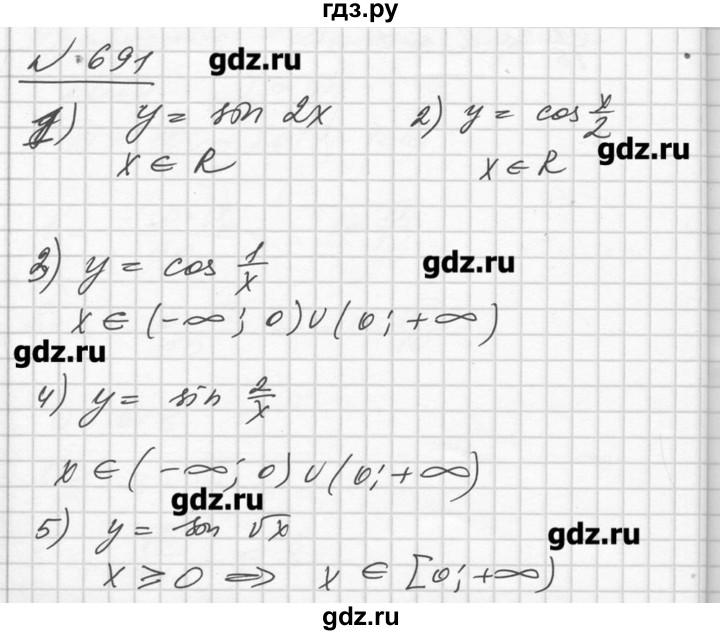 гдз.ру
№ 691 gdz.ru
1) y = sin 2x 2) y = cos x/2
gdz.ru
x ∈ R x ∈ R
3) y = cos 1/x gdz.ru
x ∈ (-∞; 0) ∪ (0; +∞)
gdz.ru
4) y = sin 2/x
x ∈ (-∞; 0) ∪ (0; +∞)
gdz.ru
5) y = sin √x gdz.ru
x ≥ 0 ⇒ x ∈ [0; +∞)
gdz.ru